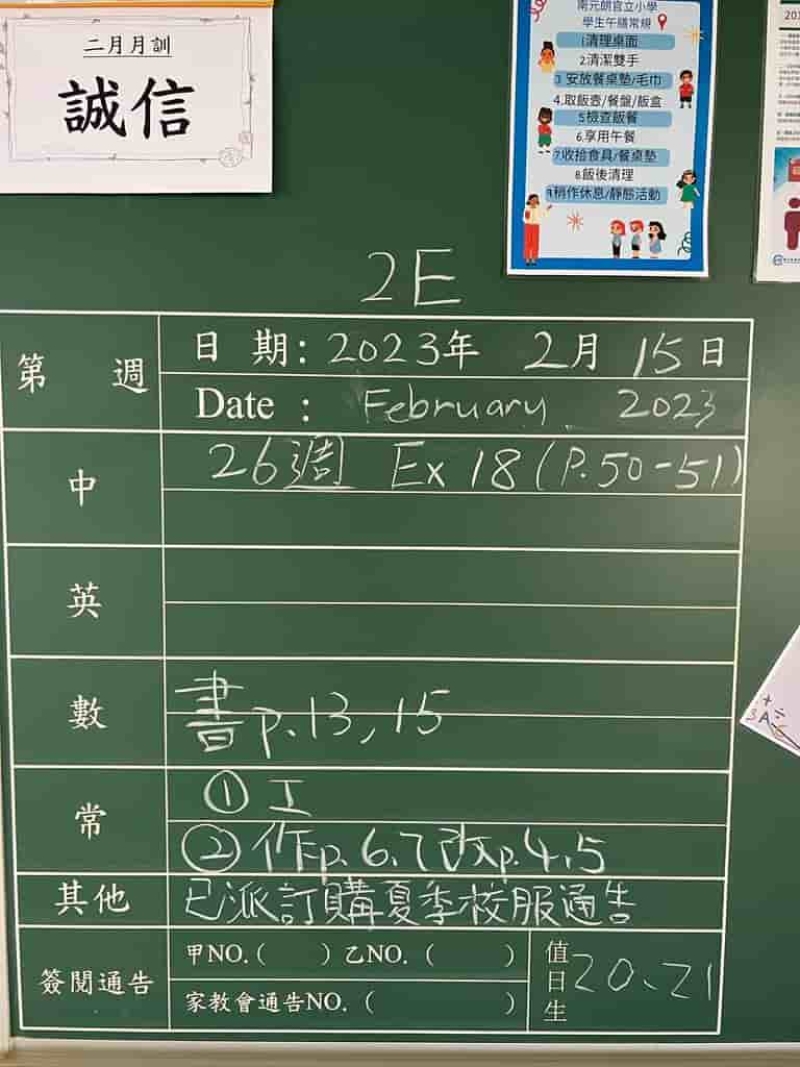 二月月訓
誠信
南元朗官立小學
學生午膳常規
1.清理桌面
2.清潔雙手
3.安放餐桌墊/毛巾
4.取飯壺/餐盤/飯盒
5檢查飯餐
6.享用午餐
7收拾食具/餐桌墊
8.飯後清理
9稍作休息/靜態活動
2E
第 週
日 期: 2023年 2月 15日
Date : February 2023
中
26週 Ex 18 (P.50-51)
英
數
書p.13, 15
常
① 工
② 作p. 6.7改p.4.5
其他
已派訂購夏季校服通告
簽閱通告
甲NO.( ) 乙NO. ( )
家教會通告NO. ( )
值日生
20、21